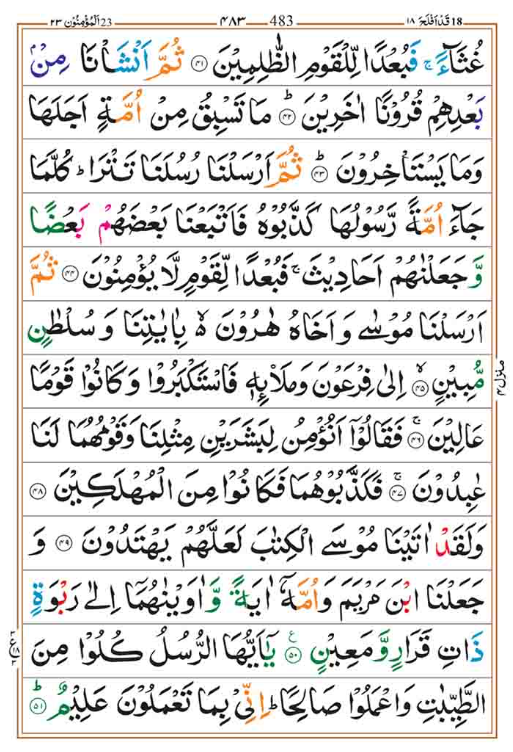 18 قَدْ اَفْلَحَ ١٨ ٤٨٣ 483 23 اَلْمُؤْمِنُوْن ٢٣
غُثَآءً ۚ فَبُعْدًا لِّلْقَوْمِ الظّٰلِمِيْنَ ﴿٤١﴾ ثُمَّ اَنْشَاْنَا مِنْۢ
بَعْدِهِمْ قُرُوْنًا اٰخَرِيْنَ ؕ﴿٤٢﴾ مَا تَسْبِقُ مِنْ اُمَّةٍ اَجَلَهَا
وَمَا يَسْتَاْخِرُوْنَ ؕ﴿٤٣﴾ ثُمَّ اَرْسَلْنَا رُسُلَنَا تَتْرَا ؕ كُلَّمَا
جَآءَ اُمَّةً رَّسُوْلُهَا كَذَّبُوْهُ فَاَتْبَعْنَا بَعْضَهُمْ بَعْضًا
وَّ جَعَلْنٰهُمْ اَحَادِيْثَ ۚ فَبُعْدًا لِّقَوْمٍ لَّا يُؤْمِنُوْنَ ﴿٤٤﴾ ثُمَّ
اَرْسَلْنَا مُوْسٰى وَ اَخَاهُ هٰرُوْنَ ۙ۬ بِاٰيٰتِنَا وَ سُلْطٰنٍ
مُّبِيْنٍ ۙ﴿٤٥﴾ اِلٰى فِرْعَوْنَ وَمَلَا۟ئِهٖ فَاسْتَكْبَرُوْا وَ كَانُوْا قَوْمًا
عَالِيْنَ ۚ﴿٤٦﴾ فَقَالُوْۤا اَنُؤْمِنُ لِبَشَرَيْنِ مِثْلِنَا وَقَوْمُهُمَا لَنَا
عٰبِدُوْنَ ۚ﴿٤٧﴾ فَكَذَّبُوْهُمَا فَكَانُوْا مِنَ الْمُهْلَكِيْنَ ﴿٤٨﴾
وَلَقَدْ اٰتَيْنَا مُوْسَى الْكِتٰبَ لَعَلَّهُمْ يَهْتَدُوْنَ ﴿٤٩﴾ وَ
جَعَلْنَا ابْنَ مَرْيَمَ وَاُمَّهٗۤ اٰيَةً وَّ اٰوَيْنٰهُمَاۤ اِلٰى رَبْوَةٍ
ذَاتِ قَرَارٍ وَّ مَعِيْنٍ ﴿٥٠﴾ يٰۤاَيُّهَا الرُّسُلُ كُلُوْا مِنَ
الطَّيِّبٰتِ وَاعْمَلُوْا صَالِحًا ؕ اِنِّىْ بِمَا تَعْمَلُوْنَ عَلِيْمٌ ؕ﴿٥١﴾
منزل ٤